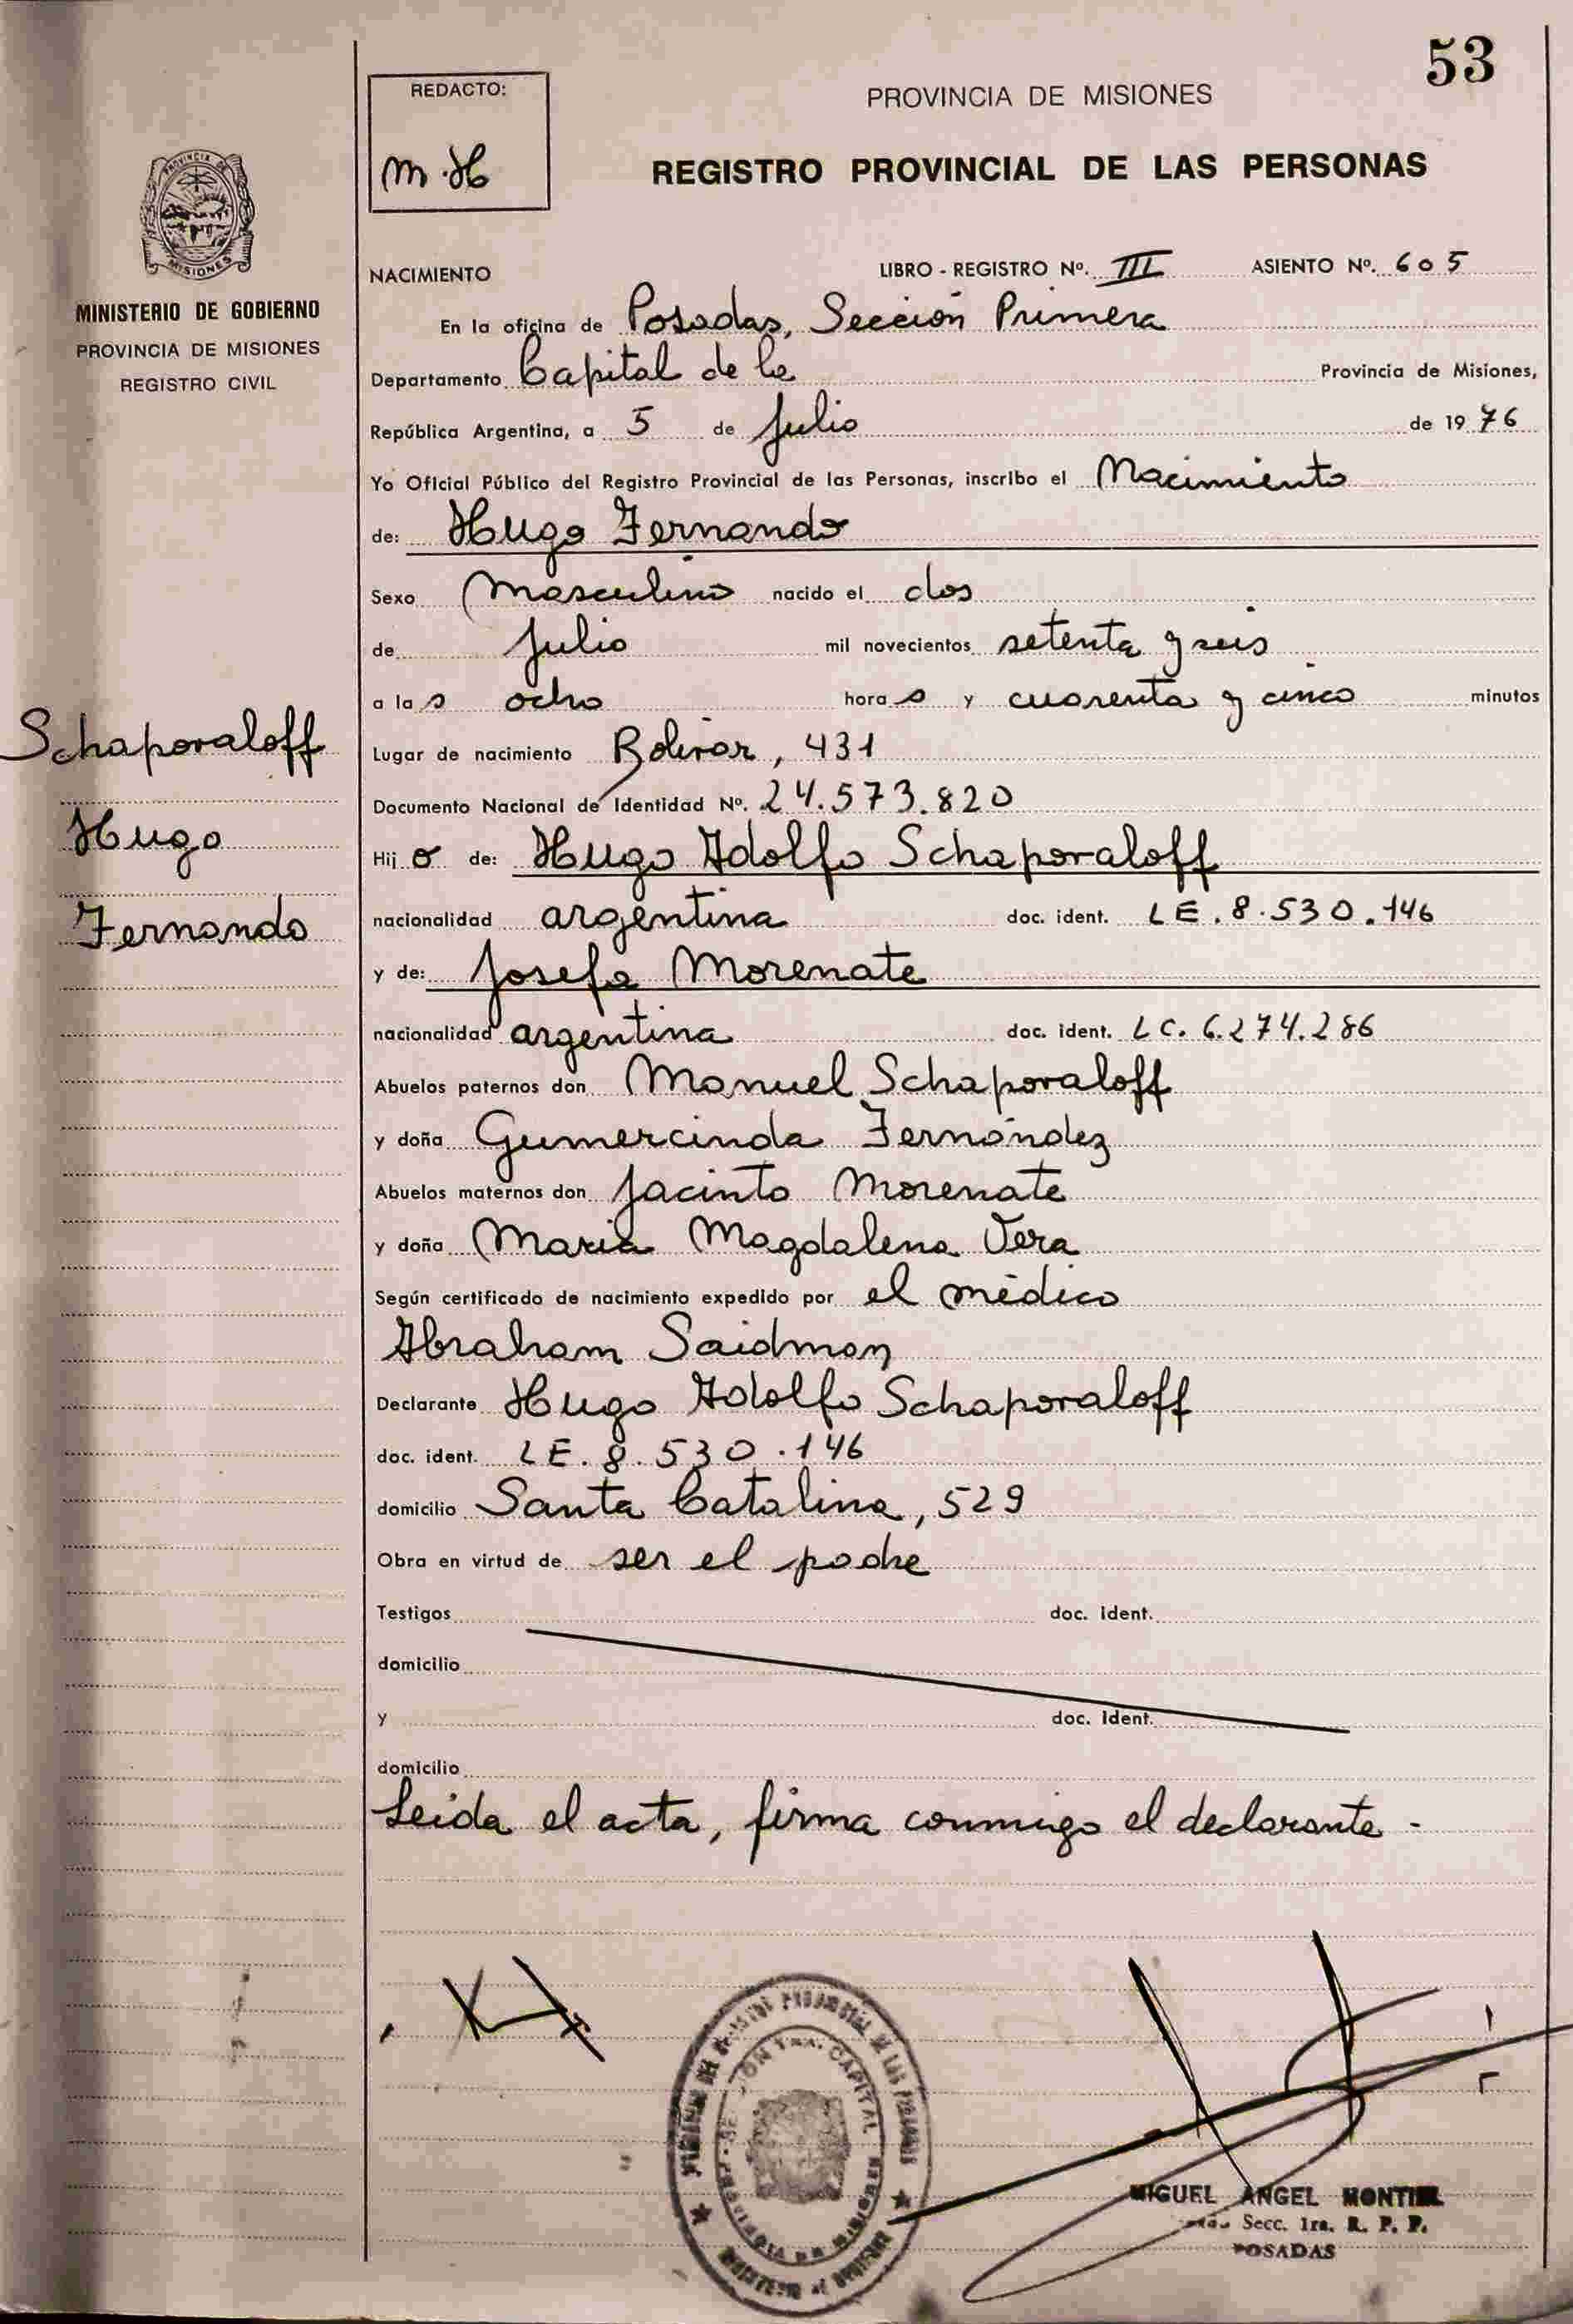 53
REDACTO:
M.H
PROVINCIA DE MISIONES
REGISTRO PROVINCIAL DE LAS PERSONAS
PROVINCIA DE
MISIONES
MINISTERIO DE GOBIERNO
PROVINCIA DE MISIONES
REGISTRO CIVIL
Schaporaloff
Hugo
Fernando
NACIMIENTO LIBRO - REGISTRO Nº. III ASIENTO Nº. 605
En la oficina de Posadas, Sección Primera
Departamento Capital de la Provincia de Misiones,
República Argentina, a 5 de Julio de 1976
Yo Oficial Público del Registro Provincial de las Personas, inscribo el Nacimiento
de: Hugo Fernando
Sexo Masculino nacido el dos
de Julio mil novecientos setenta y seis
a la s ocho hora s y cuarenta y cinco minutos
Lugar de nacimiento Bolívar, 431
Documento Nacional de Identidad Nº. 24.573.820
Hij o de: Hugo Adolfo Schaporaloff
nacionalidad argentina doc. ident. LE. 8.530.146
y de: Josefa Morenate
nacionalidad argentina doc. ident. LC. 6.274.286
Abuelos paternos don Manuel Schaporaloff
y doña Gumercinda Fernández
Abuelos maternos don Jacinto Morenate
y doña Maria Magdalena Vera
Según certificado de nacimiento expedido por el médico
Abraham Saidman
Declarante Hugo Adolfo Schaporaloff
doc. ident. LE. 8.530.146
domicilio Santa Catalina, 529
Obra en virtud de ser el padre
Testigos doc. ident.
domicilio
y doc. ident.
domicilio
Leida el acta, firma conmigo el declarante.
PROVINCIAL DE LAS PERSONAS
CAPITAL
MIGUEL ANGEL MONTIEL
Secc. 1ra. R. P. P.
POSADAS